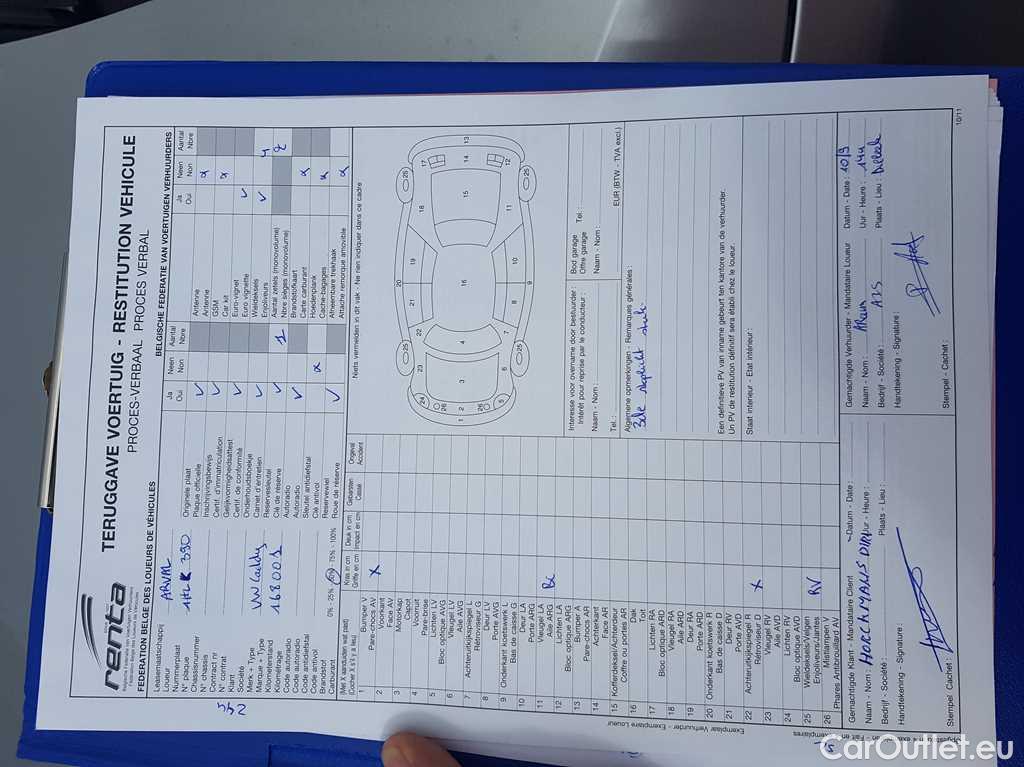 renta
TERUGGAVE VOERTUIG - RESTITUTION VEHICULE
PROCES-VERBAAL PROCES VERBAL
FEDERATION BELGE DES LOUEURS DE VÉHICULES
BELGISCHE FEDERATIE VAN VOERTUIGEN VERHUURDERS
Leasemaatschappij
Loueur
ARVAL
Nummerplaat
N° plaque
Chassisnummer
N° chassis
Contract nr
N° contrat
Klant
Société
Merk - Type
Marque + Type
VW Caddy
Kilometerstand
Kilométrage
168001
Code autoradio
Code autoradio
Code antidiefstal
Code antivol
Brandstof
Carburant
0% - 25% - 50% - 75% - 100%
Ja
Oui
Neen
Non
Aantal
Nbre
Originele plaat
Plaque officielle
Inschrijvingsbewijs
Certif. d'immatriculation
Gelijkvormigheidsattest
Certif. de conformité
Onderhoudsboekje
Carnet d'entretien
Reservesleutel
Clé de réserve
1
Autoradio
Autoradio
Sleutel antidiefstal
Clé antivol
Reservewiel
Roue de réserve
Ja
Oui
Neen
Non
Aantal
Nbre
Antenne
Antenne
GSM
Car kit
Euro-vignet
Euro vignette
Wieldeksels
Enjoliveurs
4
Aantal zetels (monovolume)
Nbre sièges (monovolume)
2
Brandstofkaart
Carte carburant
Hoedenplank
Cache-bagages
Afneembare trekhaak
Attache remorque amovible
(Met X aanduiden wat past)
(Cocher X s'il y a lieu)
Kras in cm
Griffe en cm
Deuk in cm
Impact en cm
Gebarsten
Cassé
Ongeval
Accident
1 Bumper V
Pare-chocs AV
2 Voorkant
Face AV
X
3 Motorkap
Capot
4 Voorruit
Pare-brise
5 Lichten LV
Bloc optique AVG
6 Vleugel LV
Aile AVG
7 Achteruitkijkspiegel L
Rétroviseur G
8 Deur LV
Porte AVG
9 Onderkant koetswerk L
Bas de caisse G
10 Deur LA
Porte ARG
11 Vleugel LA
Aile ARG
12 Lichten LA
Bloc optique ARG
13 Bumper A
Pare-chocs AR
14 Achterkant
Face AR
15 Kofferdeksel/Achterdeur
Coffre ou portes AR
16 Dak
Toit
17 Lichten RA
Bloc optique ARD
18 Vleugel RA
Aile ARD
19 Deur RA
Porte ARD
20 Onderkant koetswerk R
Bas de caisse D
21 Deur RV
Porte AVD
22 Achteruitkijkspiegel R
Rétroviseur D
X
23 Vleugel RV
Aile AVD
24 Lichten RV
Bloc optique AVD
25 Wieldeksels/Velgen
Enjoliveurs/Jantes
RV
26 Mistlampen V
Phares Antibrouillard AV
Niets vermelden in dit vak - Ne rien indiquer dans ce cadre
Interesse voor overname door bestuurder :
Intérêt pour reprise par le conducteur :
Naam - Nom :
Tel. :
Bod garage
Offre garage
Tel. :
Naam - Nom :
EUR (BTW - TVA excl.)
Algemene opmerkingen - Remarques générales :
3de stoplicht stuk
Een definitieve PV van inname gebeurt ten kantore van de verhuurder.
Un PV de restitution définitif sera établi chez le loueur.
Staat interieur - Etat intérieur :
Gemachtigde Klant - Mandataire Client
Datum - Date :
Naam - Nom :
Uur - Heure :
Bedrijf - Société :
Plaats - Lieu :
Handtekening - Signature :
Stempel Cachet :
Gemachtigde Verhuurder - Mandataire Loueur
Datum - Date : 10/9
Naam - Nom :
Uur - Heure : 14u
Bedrijf - Société :
Plaats - Lieu :
Handtekening - Signature :
Stempel - Cachet :
Exemplaar Verhuurder - Exemplaire Loueur
10/11
CarOutlet.eu